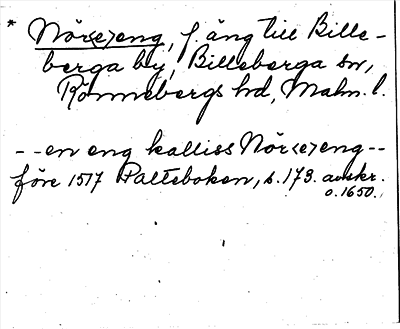 * Nörs<e>eng, f. äng till Bille-
berga by, Billeberga sn,
Rönnebergs hd, Malm. l.
--en eng kalliss Nör<e>eng--
före 1517 Palteboken, s. 173. avskr.
o. 1650.